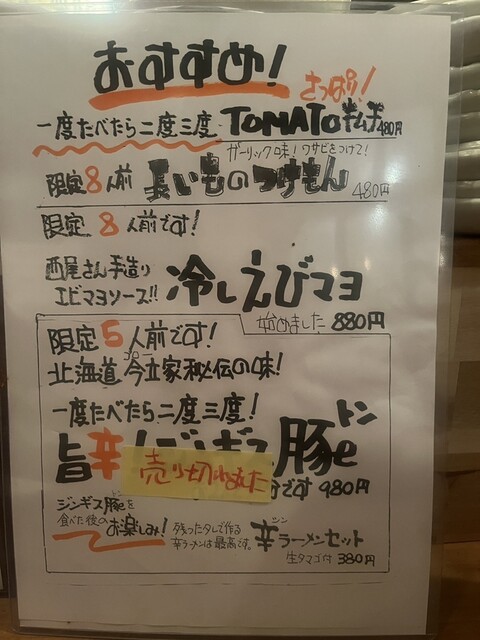 おすすめ!
さっぱり!
一度たべたら二度三度 TOMATOキムチ 480円
ガーリック味!ワサビをつけて!
限定8人前 長いものつけもん 480円
限定8人前です!
西尾さん手造り
エビマヨソース!! 冷しえびマヨ
始めました 880円
限定5人前です!
北海道 今立家秘伝の味!
一度たべたら二度三度!
トン
旨辛 豚e
売り切れました
です 980円
ジンギス豚eを
食べた後のお楽しみ!
残ったタレで作る
辛ラーメンは最高です。
シン
辛ラーメンセット
生タマゴ付 380円